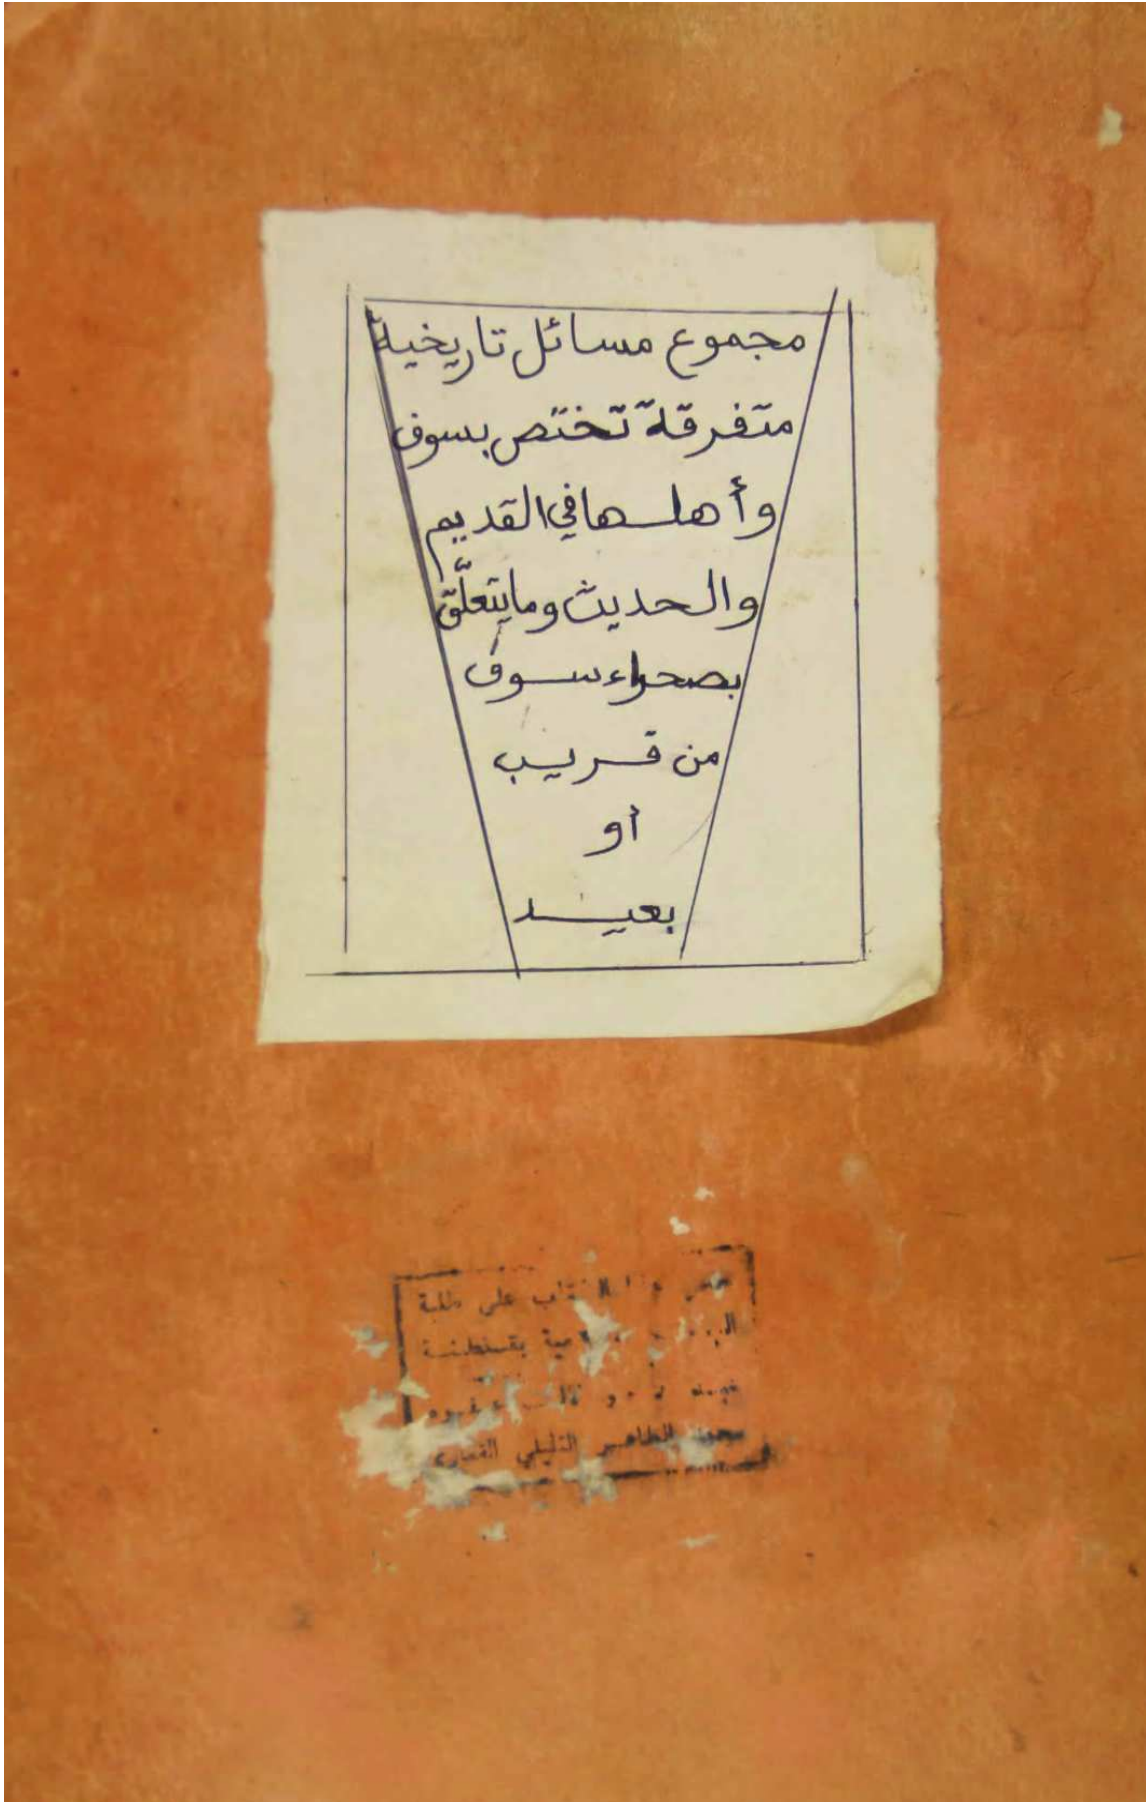 مجموع مسائل تاريخية
متفرقة تختص بسوف
وأهلها في القديم
والحديث وما يتعلّق
بصحراء سوف
من قريب
أو
بعيد
على طلبة
بقسنطينة
محمد الطاهر التليلي القماري